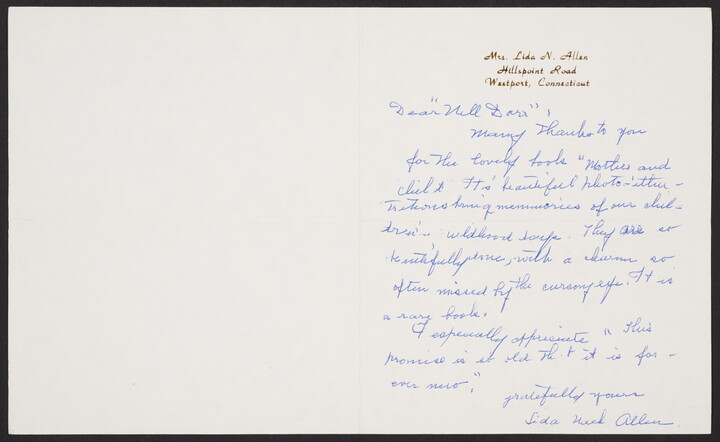 Mrs. Lida N. Allen
Hillspoint Road
Westport, Connecticut
Dear "Nell Dorr",
Many Thanks to you
for the lovely book "Mother and
child". It's beautiful photo-
bring memmories of our chil-
dren's days. They are so
beautifully done, with a charm so
often missed by the cursory eye. It is
a rare book.
I especially appreciate "This
promise is so old that it is for-
ever new."
gratefully yours
Lida Allen